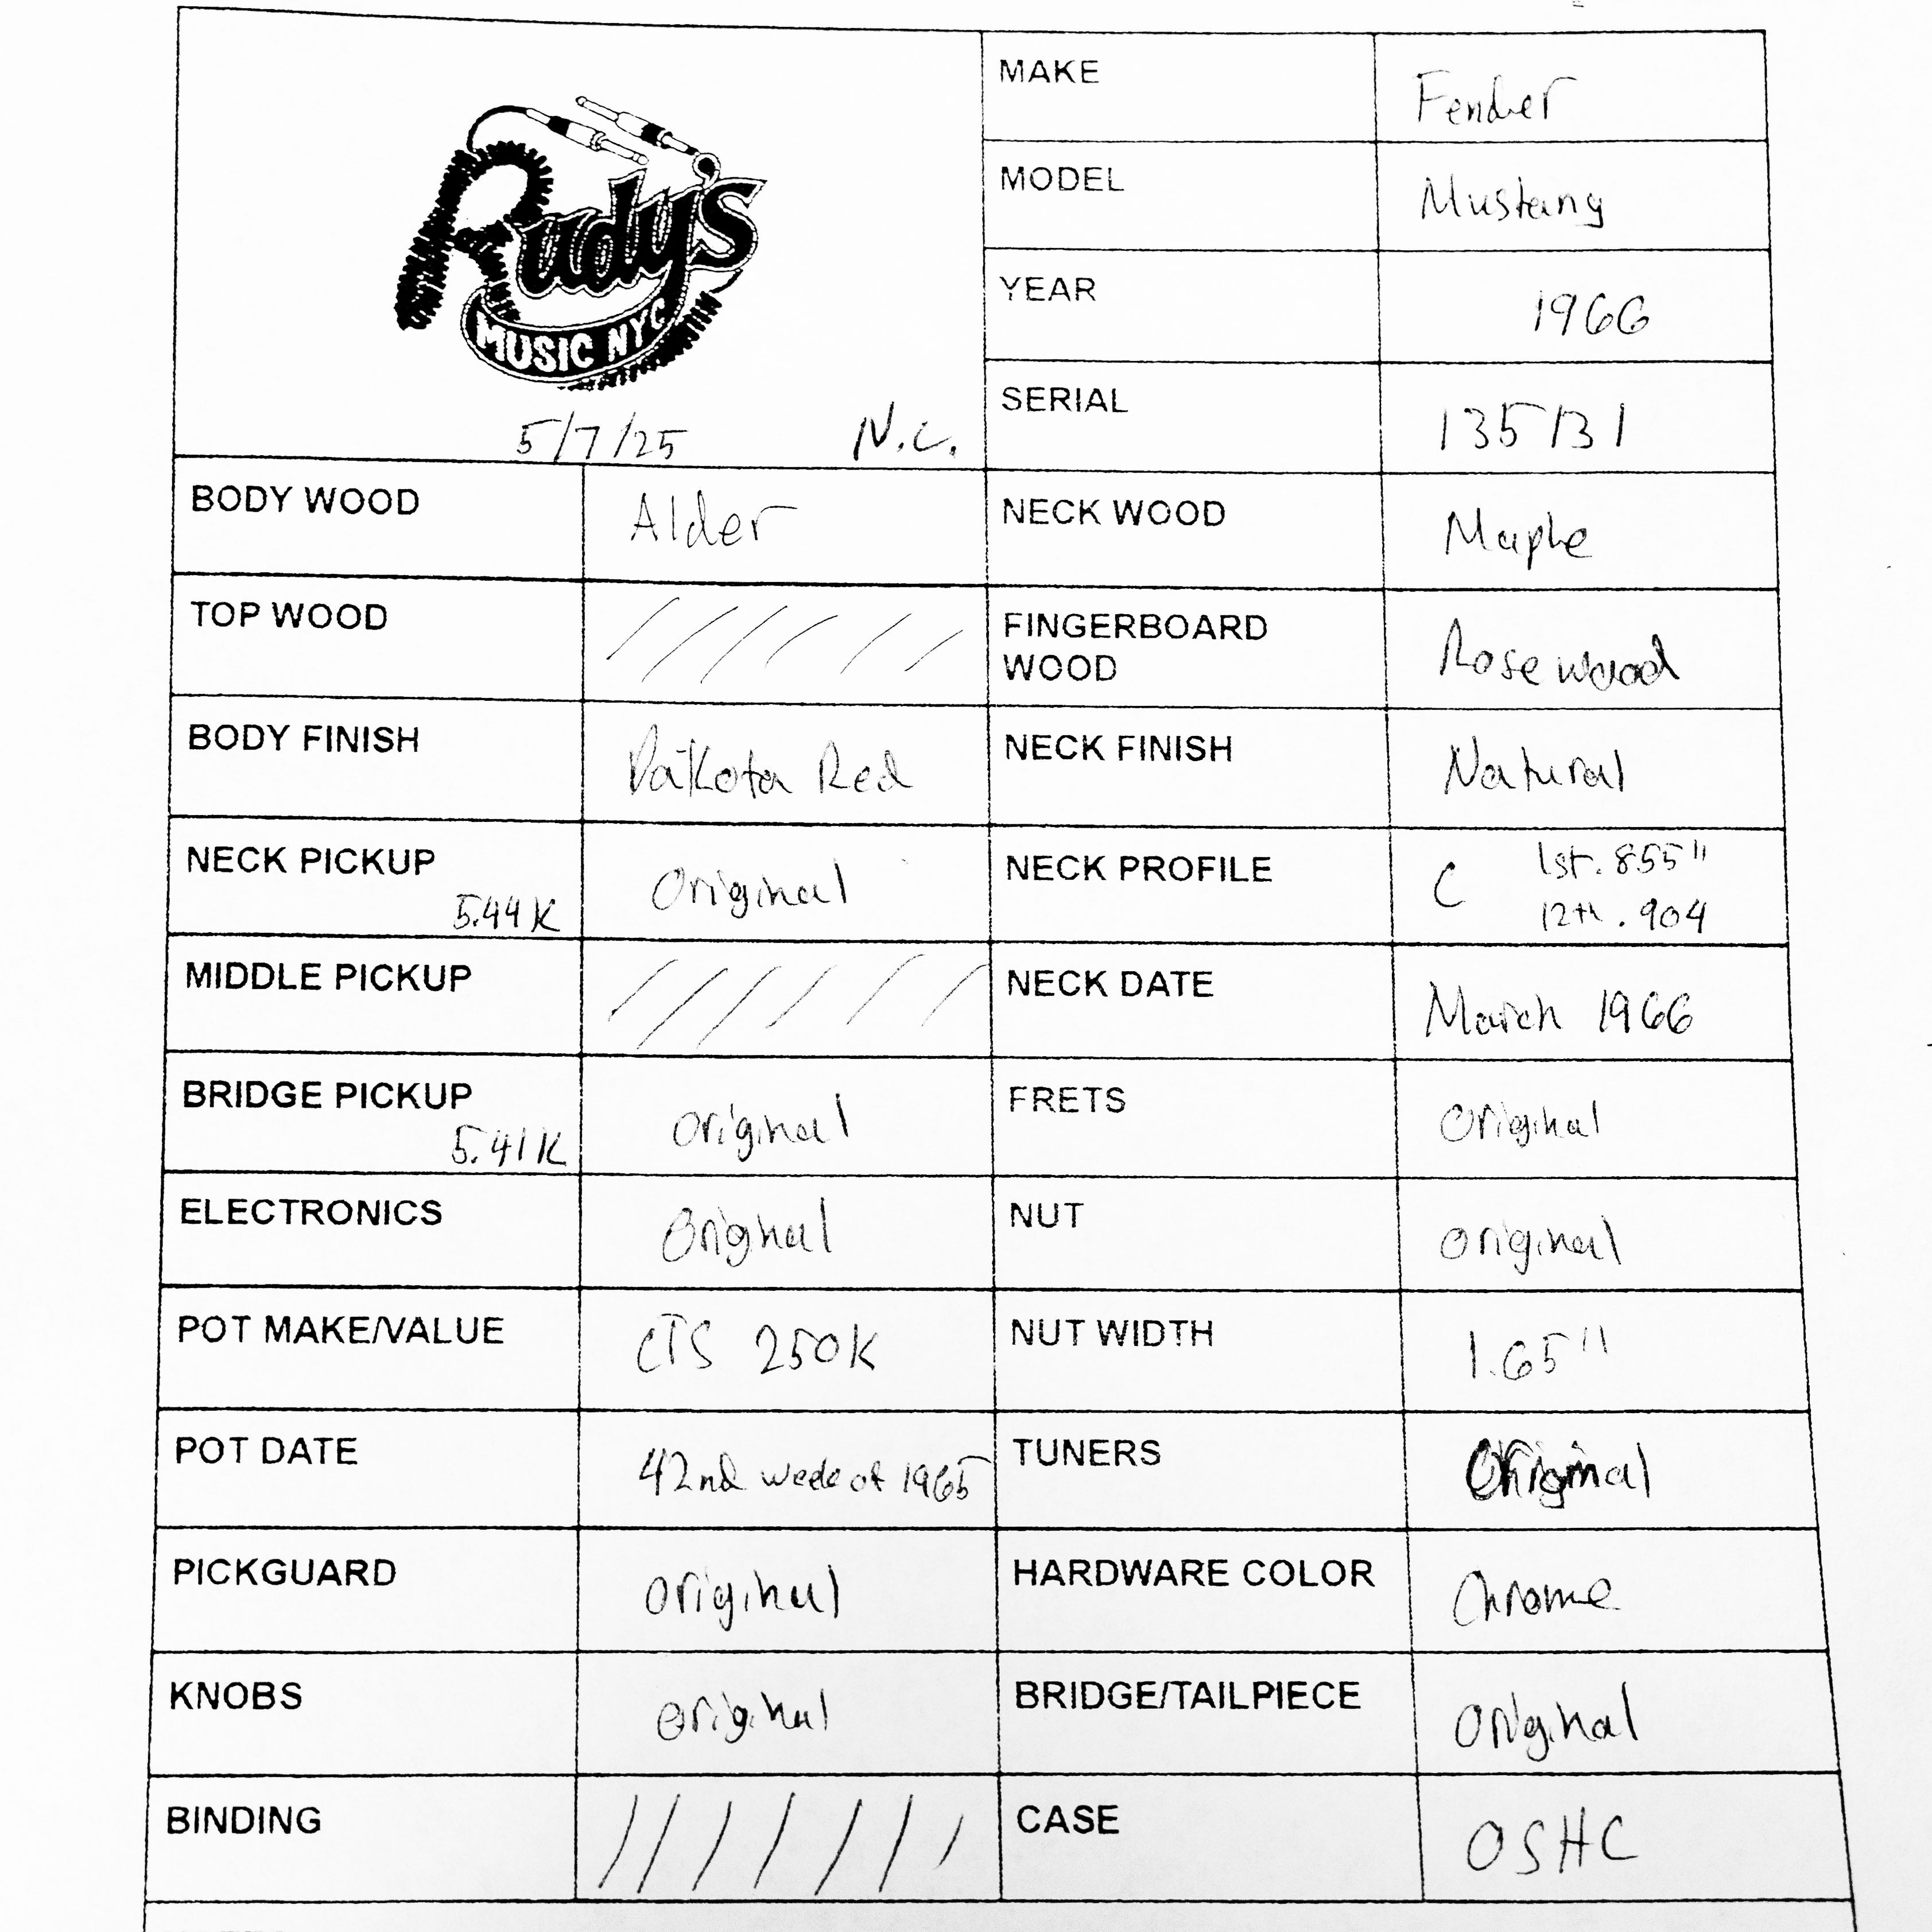 Rudy's
MUSIC NYC
5/7/25 N.C.
MAKE Fender
MODEL Mustang
YEAR 1966
SERIAL 135131
BODY WOOD Alder NECK WOOD Maple
TOP WOOD ////// FINGERBOARD
WOOD Rosewood
BODY FINISH Dakota Red NECK FINISH Natural
NECK PICKUP
5.44K Original NECK PROFILE C 1st .855"
12th .904
MIDDLE PICKUP ////// NECK DATE March 1966
BRIDGE PICKUP
5.41K Original FRETS Original
ELECTRONICS Original NUT Original
POT MAKE/VALUE CTS 250K NUT WIDTH 1.65"
POT DATE 42nd week of 1965 TUNERS Original
PICKGUARD Original HARDWARE COLOR Chrome
KNOBS Original BRIDGE/TAILPIECE Original
BINDING /////// CASE OSHC